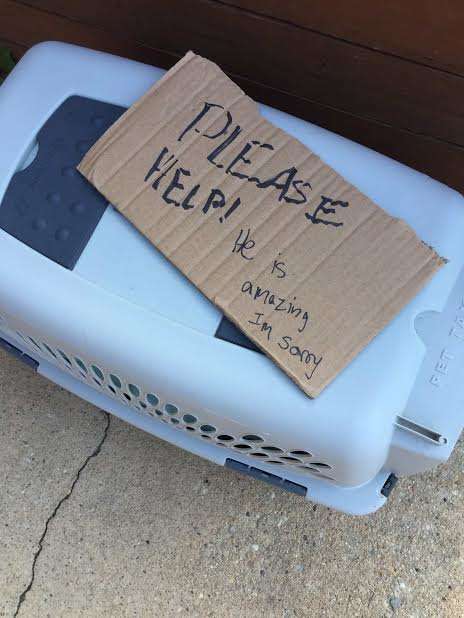 PLEASE
HELP!
He is
amazing
Im sorry
PET